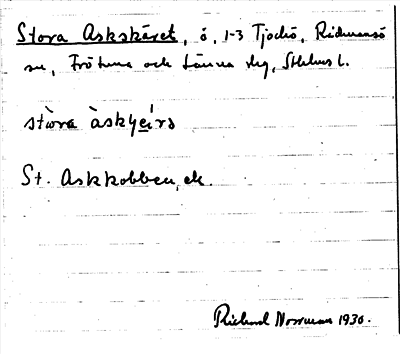 Stora Askskäret, ö, 1-3 Tjockö, Rådmansö
sn, Frötuna och Länna slg, Sthlms l.
stòra àskʃeìrə
St. Askkobben, ek.
Richard Norrman 1930.